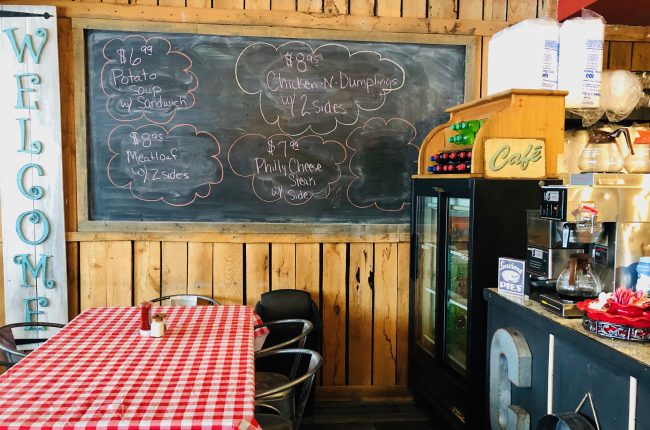 WELCOME
$6.99
Potato
Soup
w/ Sandwich
$8.95
Chicken-N-Dumplings
w/ 2 sides
$8.95
Meatloaf
w/ 2 sides
$7.95
Philly Cheese
Steak
w/ Side
Café
PIES
C